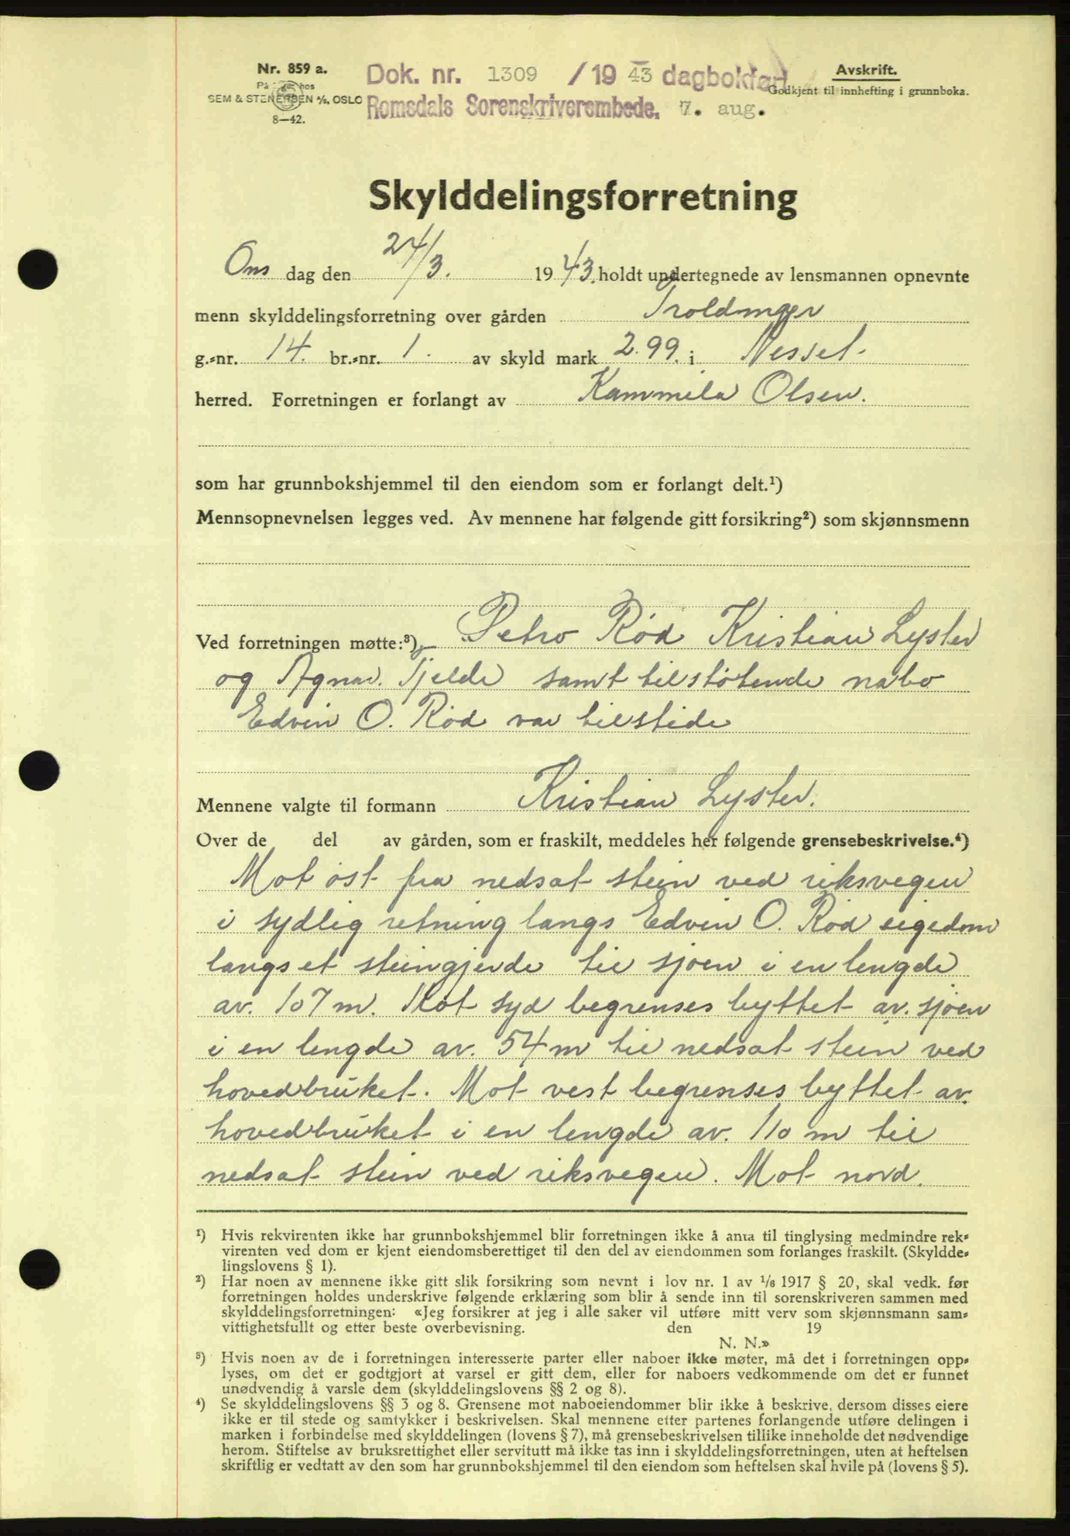 Nr. 859 a.
På hos
SEM & STENERSEN A/S, OSLO
8—42.
Dok. nr. 1309 /1943 dagbokført
Romsdals Sorenskriverembede. 7. aug.
Avskrift.
Godkjent til innhefting i grunnboka.
Skylddelingsforretning
Ons dag den 24/3. 1943. holdt undertegnede av lensmannen opnevnte
menn skylddelingsforretning over gården
g.-nr. 14. br.-nr. 1. av skyld mark 2.99. i Nesset
herred. Forretningen er forlangt av Kammila Olsen.
som har grunnbokshjemmel til den eiendom som er forlangt delt.¹)
Mennsopnevnelsen legges ved. Av mennene har følgende gitt forsikring²) som skjønnsmenn
Ved forretningen møtte:³) Petro Rød Kristian Lyster
og Agnar Tjelde samt tilstøtende nabo
Edvin O. Rød var tilstede
Mennene valgte til formann Kristian Lyster.
Over de del av gården, som er fraskilt, meddeles her følgende grensebeskrivelse.⁴)
Mot øst fra nedsat stein ved riksvegen
i sydlig retning langs Edvin O. Rød eigedom
langs et steingjerde til sjøen i en lengde
av. 107 m. Mot syd begrenses byttet av. sjøen
i en lengde av. 54 m til nedsat stein ved
hovedbruket. Mot vest begrenses byttet av.
hovedbruket i en lengde av. 110 m til
nedsat stein ved riksvegen. Mot nord.
¹) Hvis rekvirenten ikke har grunnbokshjemmel blir forretningen ikke å anta til tinglysing medmindre rek-
virenten ved dom er kjent eiendomsberettiget til den del av eiendommen som forlanges fraskilt. (Skyldde-
lingslovens § 1).
²) Har noen av mennene ikke gitt slik forsikring som nevnt i lov nr. 1 av 1/6 1917 § 20, skal vedk. før
forretningen holdes underskrive følgende erklæring som blir å sende inn til sorenskriveren sammen med
skylddelingsforretningen: «Jeg forsikrer at jeg i alle saker vil utføre mitt verv som skjønnsmann sam-
vittighetsfullt og etter beste overbevisning. den 19
N. N.»
³) Hvis noen av de i forretningen interesserte parter eller naboer ikke møter, må det i forretningen opp-
lyses, om det er godtgjort at varsel er gitt dem, eller for naboers vedkommende om det er funnet
unødvendig å varsle dem (skylddelingslovens §§ 2 og 8).
⁴) Se skylddelingslovens §§ 3 og 8. Grensene mot naboeiendommer blir ikke å beskrive, dersom disses eiere
ikke er til stede og samtykker i beskrivelsen. Skal mennene etter partenes forlangende utføre delingen i
marken i forbindelse med skylddelingen (lovens § 7), må grensebeskrivelsen tillike inneholde det nødvendige
herom. Stiftelse av bruksrettighet eller servitutt må ikke tas inn i skylddelingsforretningen, uten at heftelsen
skriftlig er vedtatt av den som har grunnbokshjemmel til den eiendom som heftelsen skal hvile på (lovens § 5).